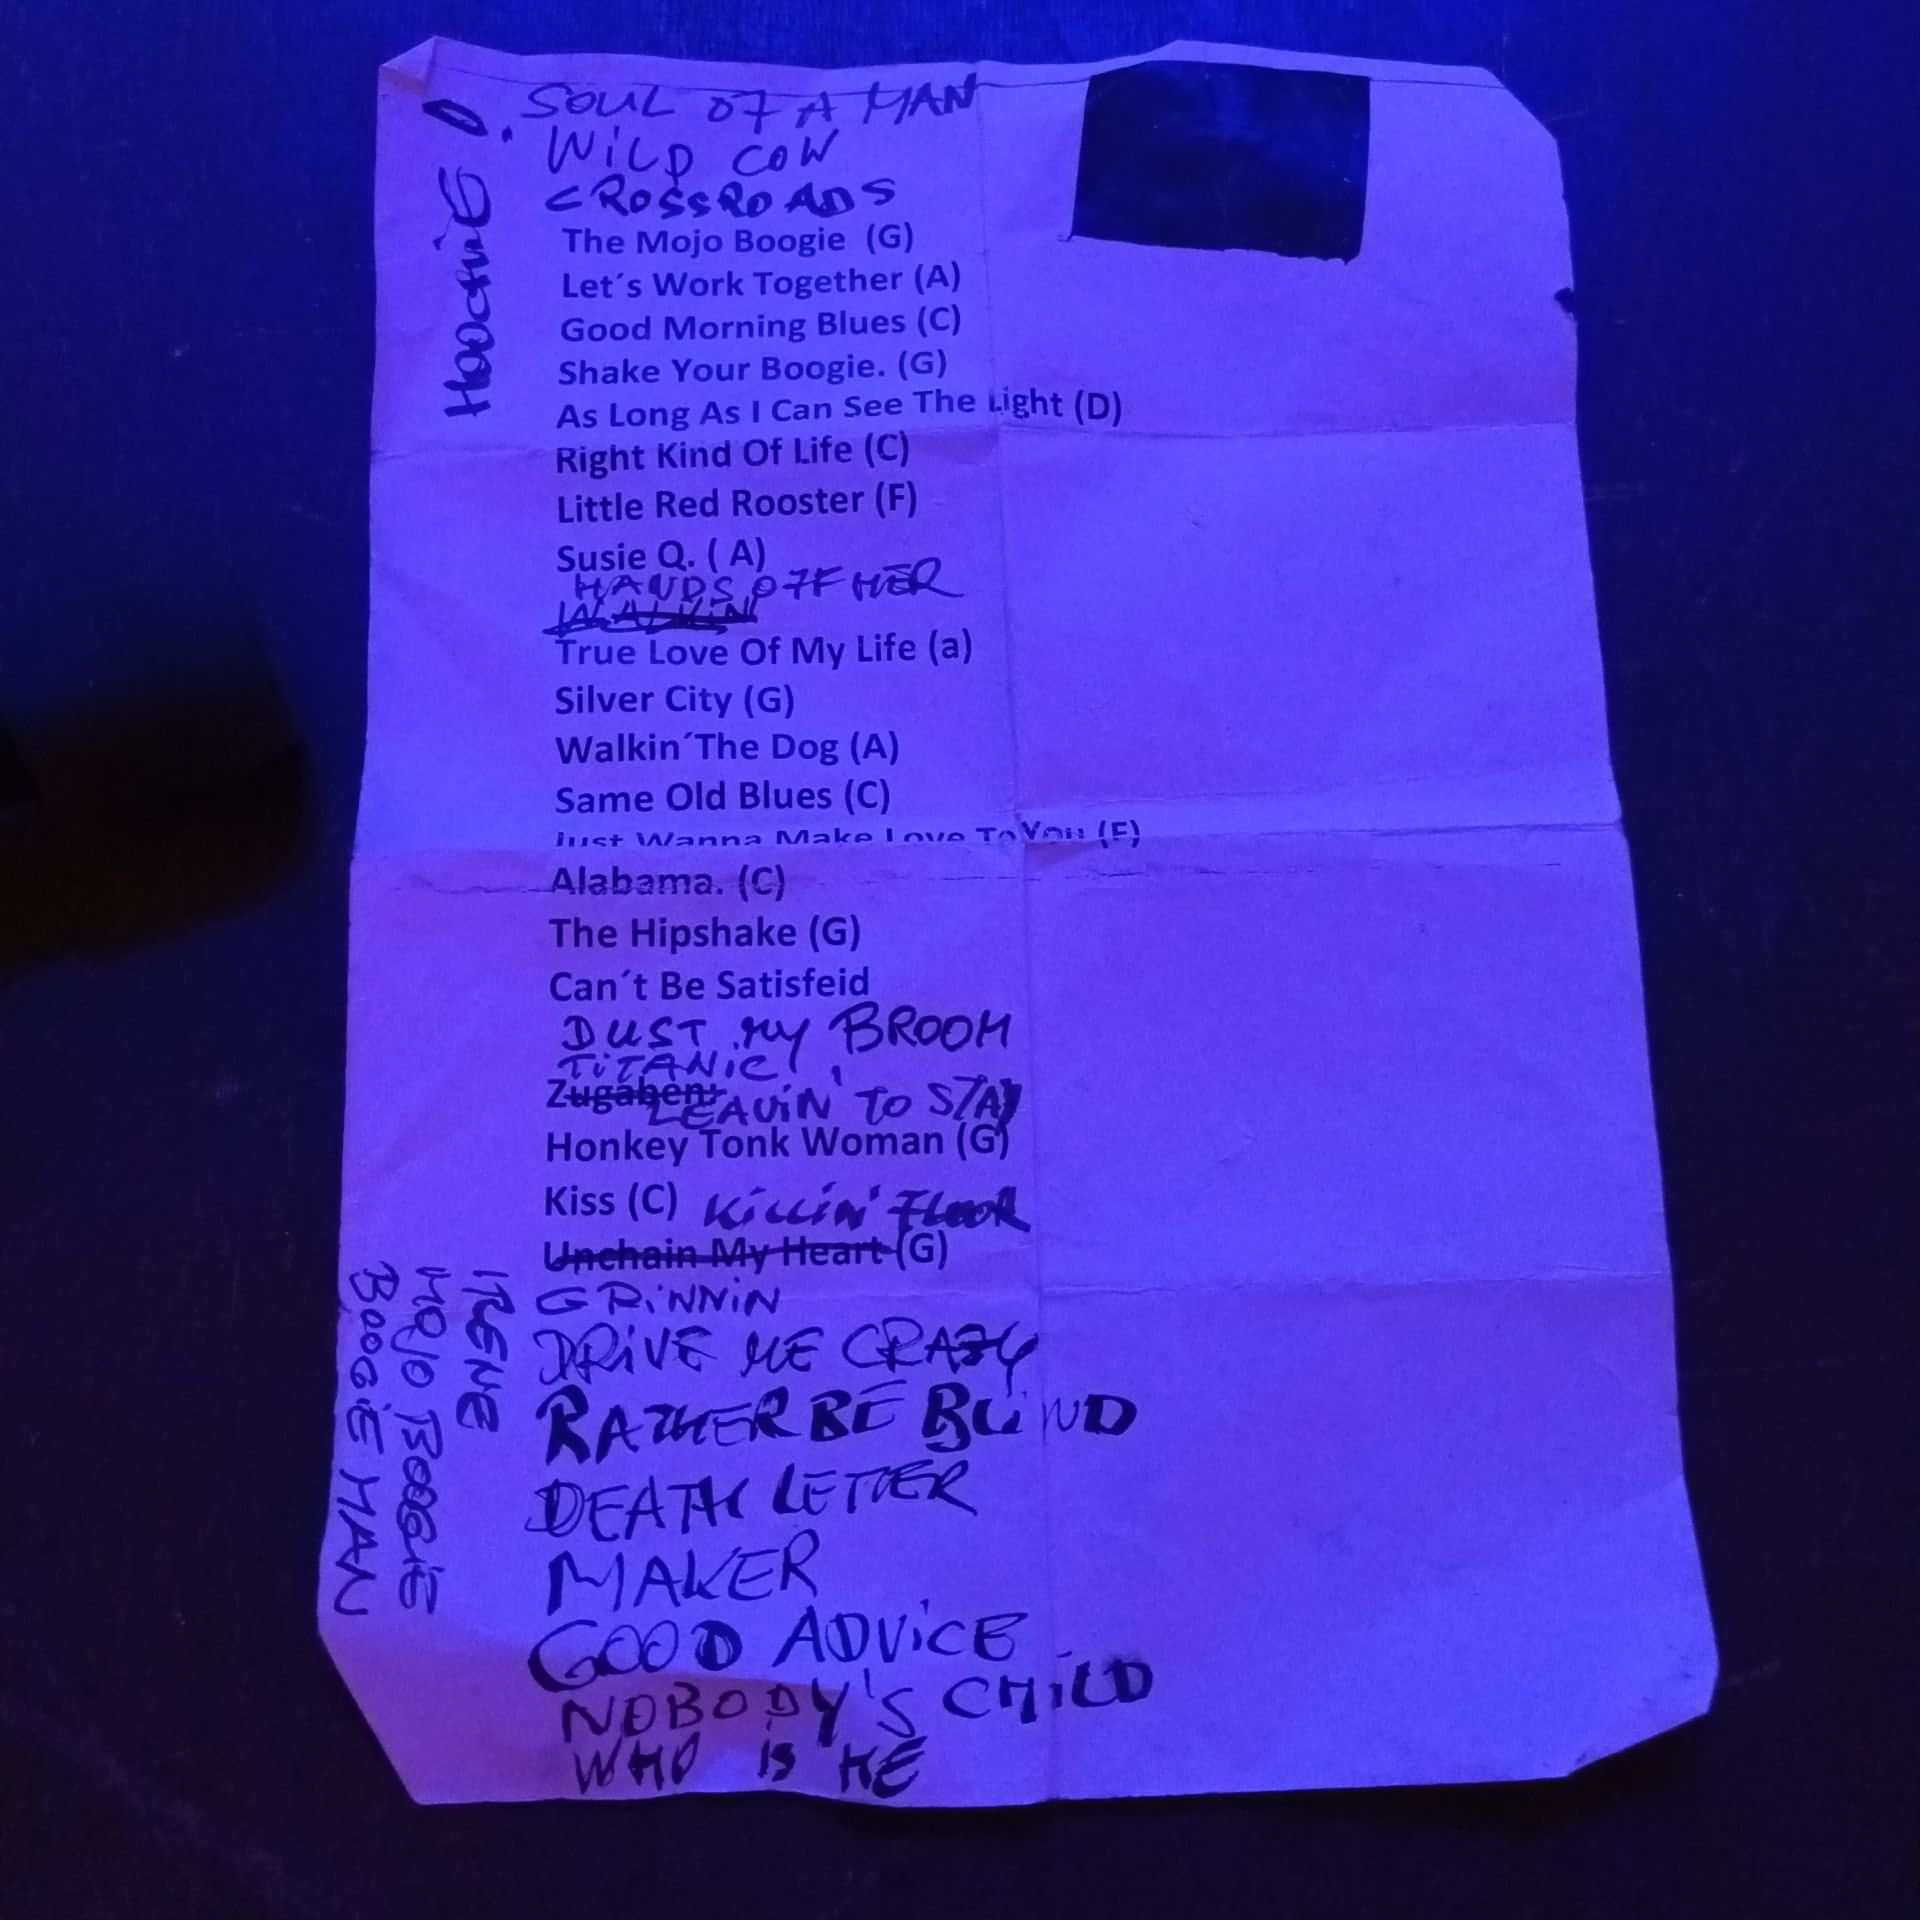 SOUL OF A MAN
WILD COW
CROSSROADS
The Mojo Boogie (G)
Let´s Work Together (A)
Good Morning Blues (C)
Shake Your Boogie. (G)
As Long As I Can See The Light (D)
Right Kind Of Life (C)
Little Red Rooster (F)
Susie Q. ( A)
HANDS OFF HER
WALKIN
True Love Of My Life (a)
Silver City (G)
Walkin´The Dog (A)
Same Old Blues (C)
Just Wanna Make Love To You (E)
Alabama. (C)
The Hipshake (G)
Can´t Be Satisfeid
DUST MY BROOM
TITANIC
Zugaben:
LEAVIN' TO STAY
Honkey Tonk Woman (G)
Kiss (C) KILLIN' FLOOR
Unchain My Heart (G)
GRINNIN
DRIVE ME CRAZY
RATHER BE BLIND
DEATH LETTER
MAKER
GOOD ADVICE
NOBODY'S CHILD
WHO IS HE
HOOCHIE
IRENE
MOJO BOOGIE
BOOGIE MAN